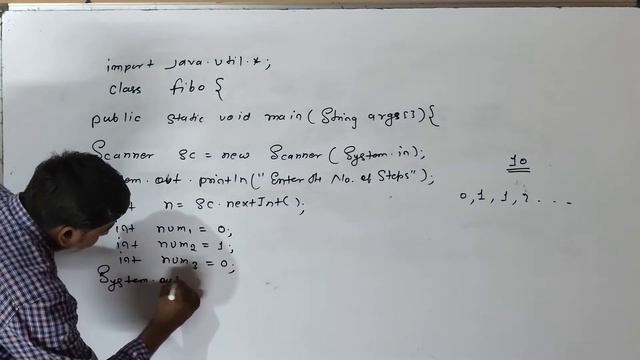 import java.util.*;
class fibo {
public static void main(String args[]){
Scanner sc = new Scanner(System.in);
em.out.println("Enter the No. of Steps");
t n = sc.nextInt();
int num1 = 0;
int num2 = 1;
int num3 = 0;
System.out
10
0, 1, 1, 2 . . . .